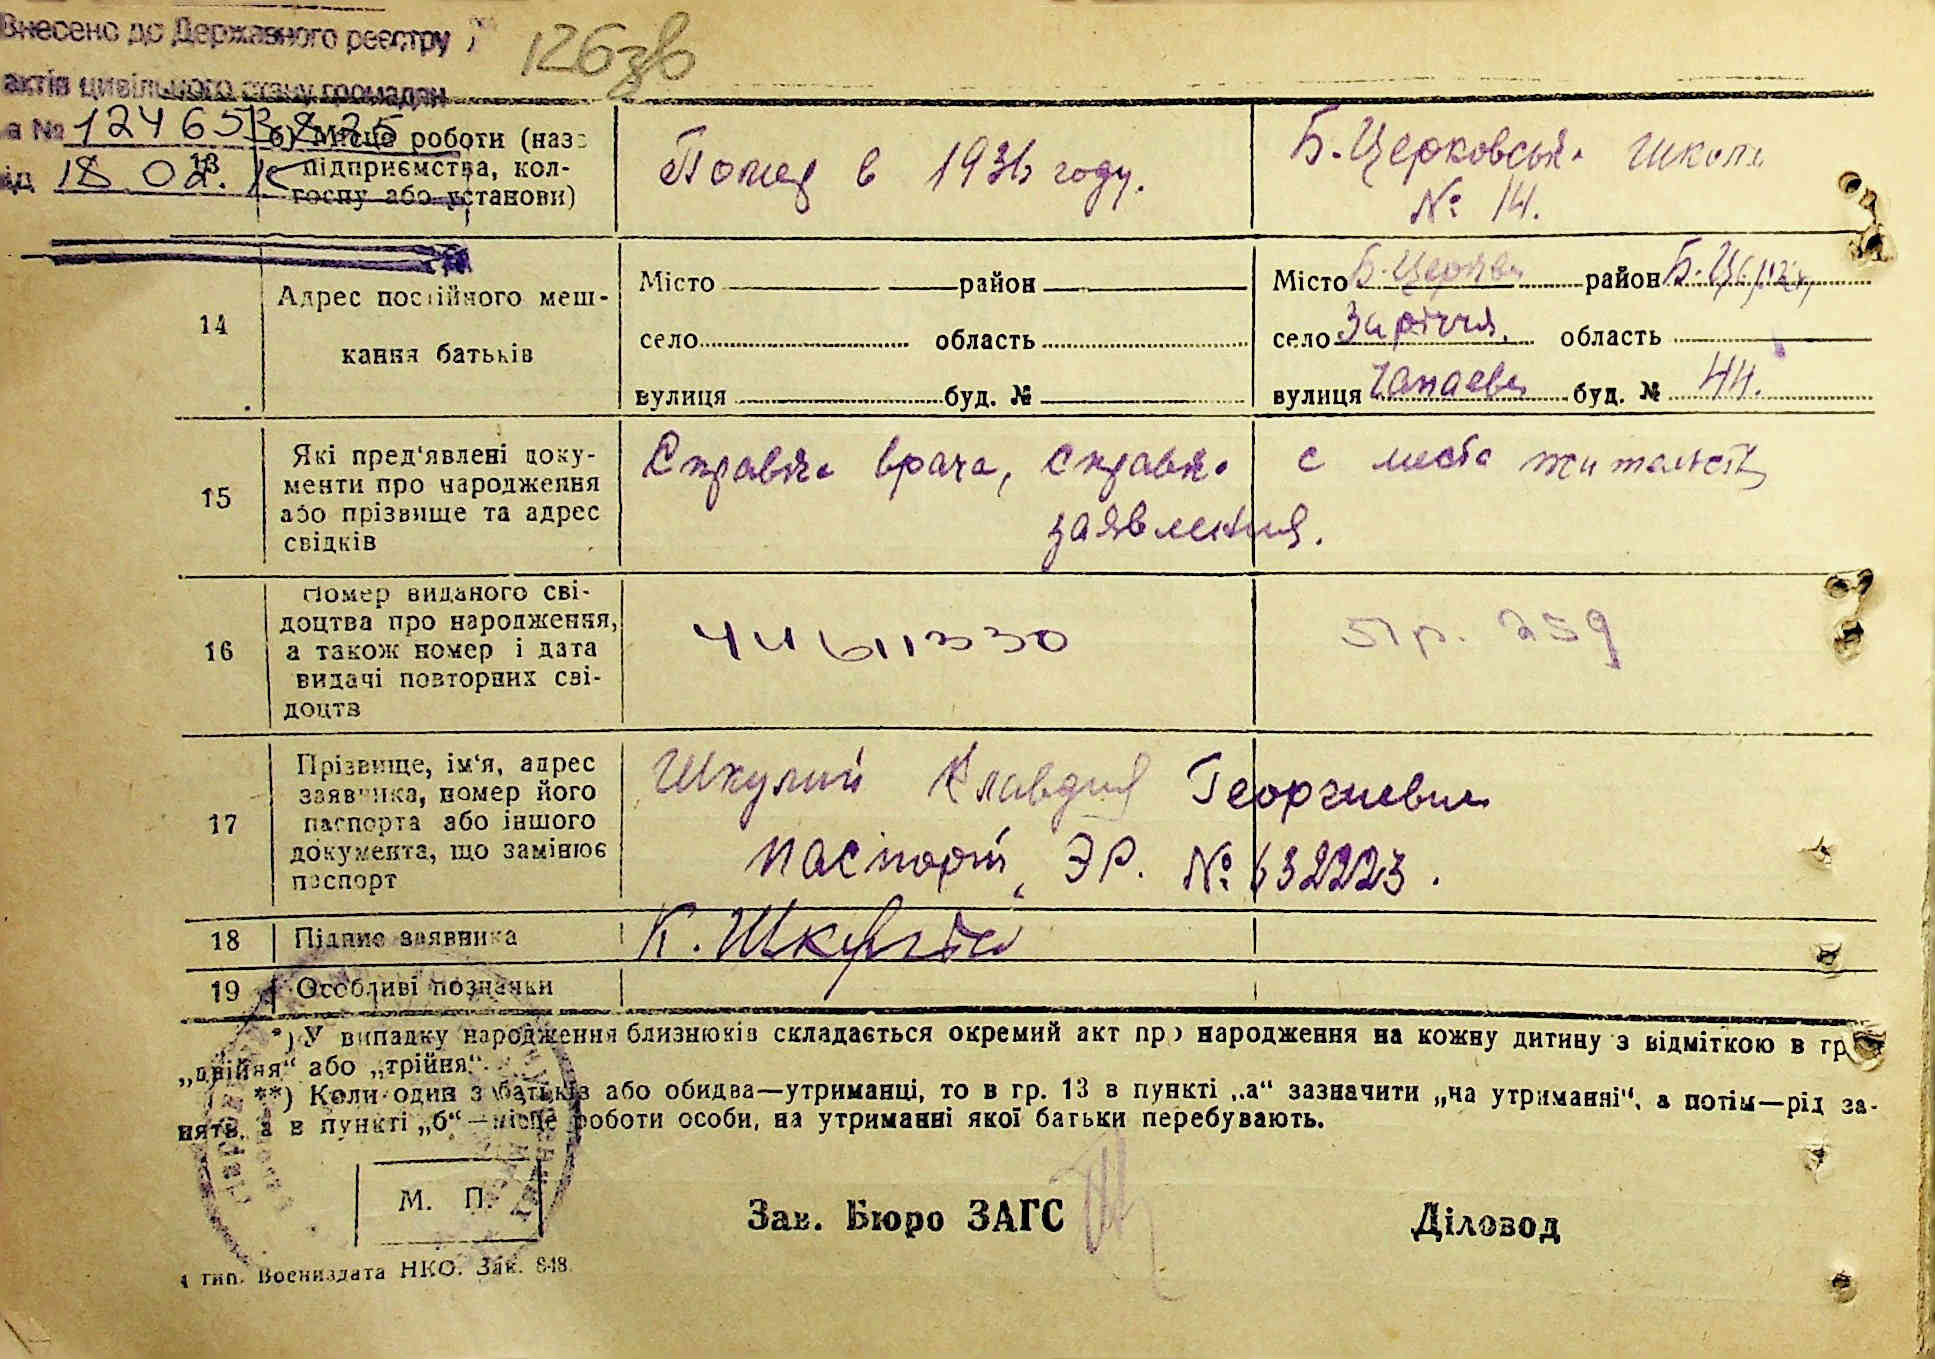 Внесено до Державного реєстру
126зв
актів цивільного стану громадян
за №
від 18.02.
13
б) Місце роботи (назва
підприємства, кол-
госпу або установи)
в 193 году.
Б.Церковська школа
№ 14.
14
Адрес постійного меш-
кання батьків
Місто район
село область
вулиця буд. №
Місто Б.Церква район Б.Церк.
село Заріччя, область
вулиця Чапаева буд. № 44.
15
Які пред'явлені доку-
менти про народження
або прізвище та адрес
свідків
Справка врача, справка с места жительства
заявления.
16
Номер виданого сві-
доцтва про народження,
а також номер і дата
видачі повторних сві-
доцтв
стр. 259
17
Прізвище, ім'я, адрес
заявника, номер його
паспорта або іншого
документа, що замінює
паспорт
Клавдия Георгиевна
паспорт, ЭР. № 632223.
18
Підпис заявника
К.
19
Особливі познанки
*) У випадку народження близнюків складається окремий акт про народження на кожну дитину з відміткою в гр.
„двійня“ або „трійня“.
**) Коли один з батьків або обидва—утриманці, то в гр. 13 в пункті „а“ зазначити „на утриманні“, а потім—рід за-
нять, а в пункті „б“—місце роботи особи, на утриманні якої батьки перебувають.
М. П.
Зав. Бюро ЗАГС
Діловод
тип. Воениздата НКО. Зак. 848.